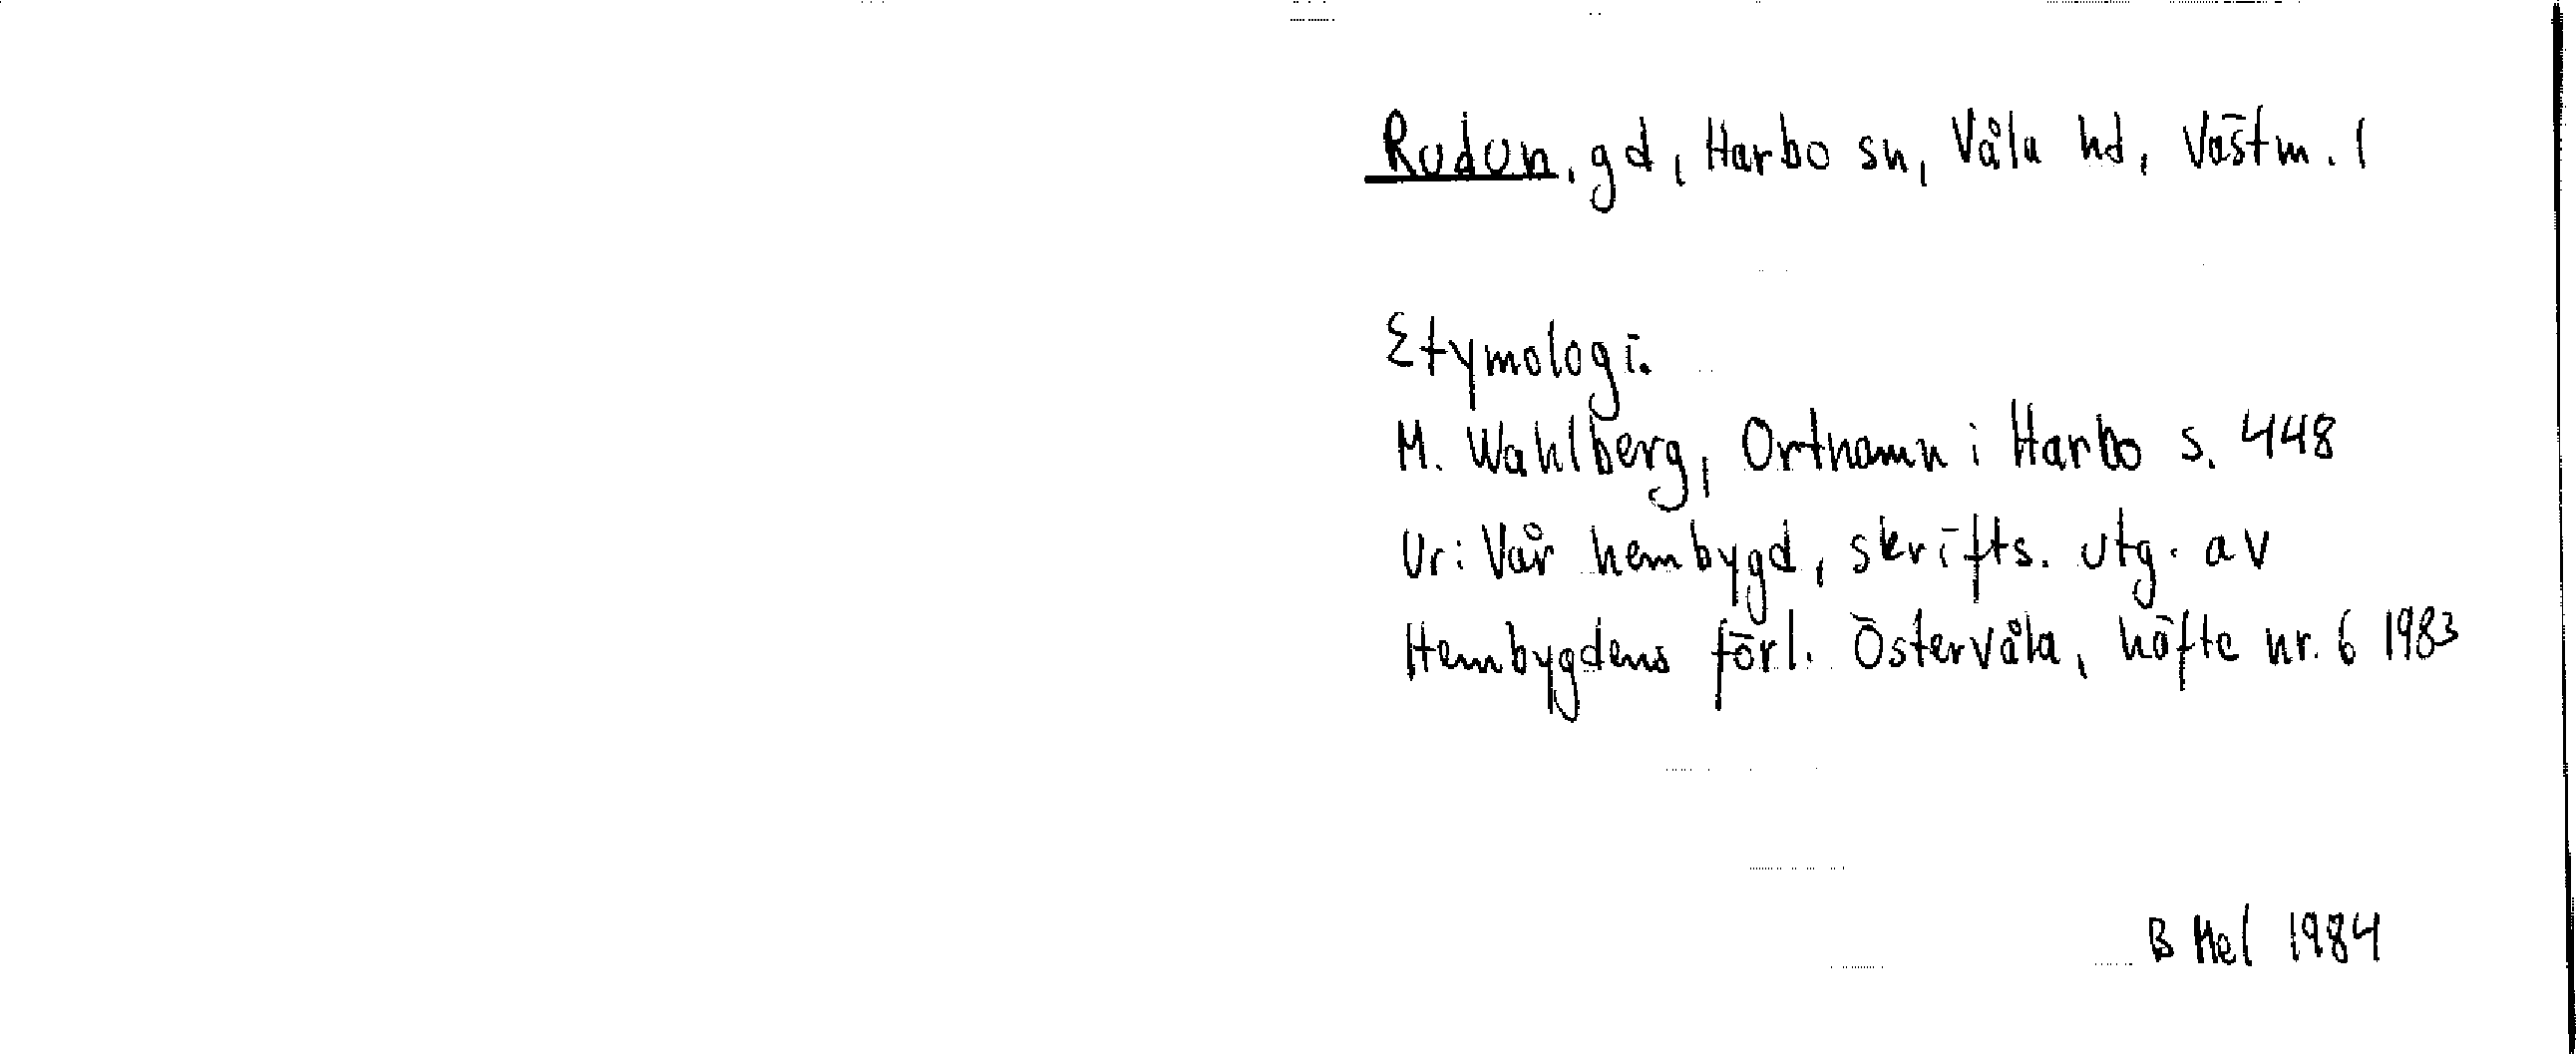 Rudun, gd, Harbo sn, Våla hd, Västm. l
Etymologi.
M. Wahlberg, Ortnamn i Harbo s. 448
Ur: Vår hembygd, skrifts. utg. av
Hembygdens förl. Östervåla, häfte nr. 6 1983
B Hel 1984